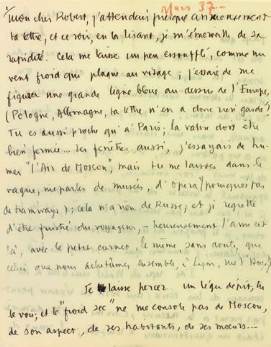 Mars 37
mon cher Robert, j'attendais presque anxieusement
ta lettre, et ce soir, en la lisant, je m'émerveille de sa
rapidité. Cela me laisse un peu essoufflé, comme un
vent froid qui plaque au visage ; j'essaie de me
figurer une grande ligne bleue au dessus de l'Europe,
(Pologne, Allemagne, ta lettre n'en a donc rien gardé ?
Tu es aussi proche qu'à Paris. La valise doit être
bien fermée... tes fenêtres aussi, j'essayais de hu-
mer "l'Air de Moscou", mais tu me laisses dans le
vague, me parles de musées, d'opéra (pourquoi pas
de tramways) ; cela n'a rien de Russe ; et je regrette
d'être frustré du voyageur, - heureusement l'ami est
là, avec le petit carnet, le même sans doute, que
celui que nous achetâmes ensemble, à Lyon,
Je laisse percer un léger dépit, tu
le vois, et le "froid sec" ne me console pas de Moscou,
de son aspect, de ses habitants, de ses mœurs...